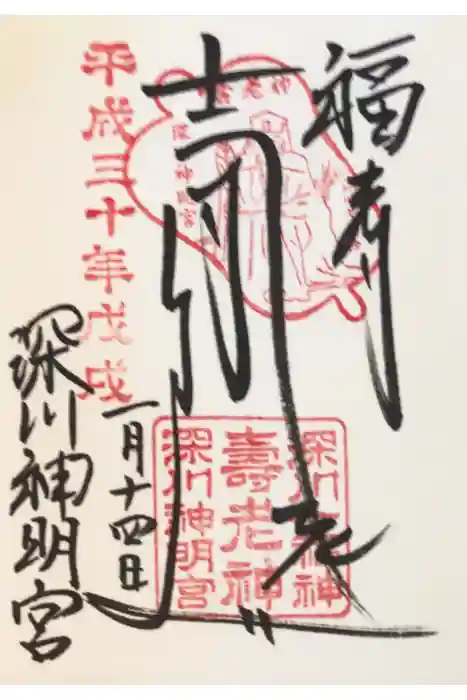 福寿
深川七福神
壽老神
深川神明宮
平成三十年戊戌
一月十四日
深川神明宮